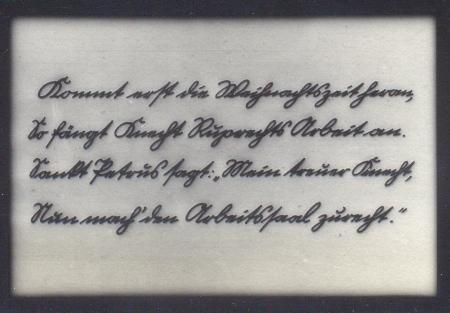 Kommt erst die Weihnachtszeit heran,
So fängt Knecht Ruprechts Arbeit an.
Sankt Petrus sagt: „Mein treuer Knecht,
Nun mach' den Arbeitssaal zurecht.“